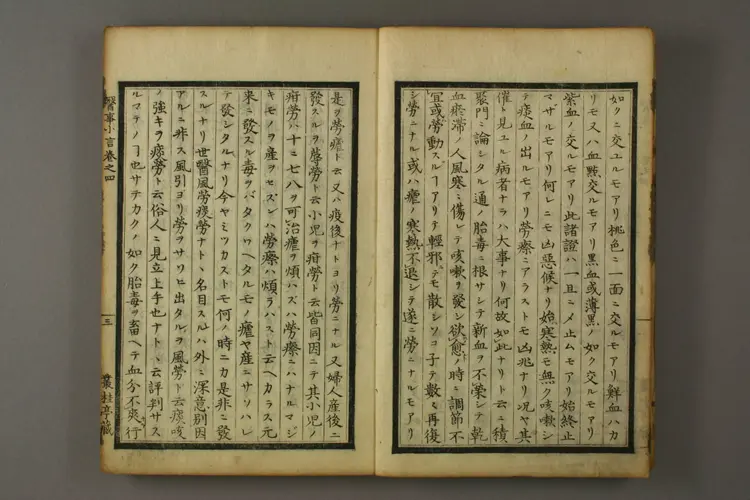 如クニ交ユルモアリ桃色ニ一面ニ交ルモアリ鮮血ハカ
リモ又ハ血㸃交ルモアリ黒血或薄黒ノ如ク交ルモアリ
紫血ノ交ルモアリ此諸證ハ一旦ニメ止ムモアリ始終止
マザルモアリ何レニモ凶惡候ナリ始寒熱モ無ク咳嗽シ
テ痰血ノ出ルモアリ勞療ニアラストモ凶兆ナリ况ヤ其
催ト見ユル病者ナラハ大事ナリ何故如此ナリト云ニ積
聚門ニ論シタル通ノ胎毒ニ根サシテ新血ヲ不榮シテ乾
血瘀滞ノ人風寒ニ傷レテ咳嗽ヲ發シ欲愈ノ時ニ調節不
宜或勞動スルヿアリテ輕邪デモ散シソコ子テ數々再復
シ勞ニナルモアリ或ハ瘧ノ寒熱不退シテ遂ニ勞ニナルモアリ
是ヲ勞瘧ト云又ハ疫後ナトヨリ勞ニナル又婦人産後ニ
發スルヲ蓐勞ト云小児ヲ疳勞ト云皆同因ニテ其小児ノ
疳勞ハ十ニ七八ヲ可治瘧ヲ煩ハズハ勞療ニハナルマジ
キモノヲ産ヲセズンハ勞療ハ煩ラハスト云ヘカラス元
来ニ發スル毒ヲバタクワヘタルモノ瘧ヤ産ニサソハレ
テ發シタルナリ今ヤミツカストモ何ノ時ニカ是非ニ發
スルナリ世醫風勞痰勞ナト丶名目スルハ外ニ深意別因
アルニ非ス風引ヨリ勞ヲサソヒ出タルヲ風勞ト云痰咳
ノ強キヲ痰勞ト云俗人ニ見立上手也ナト丶云評判サス
ルマテノヿ也サテカクノ如ク胎毒ヲ畜ヘテ血分不爽行
醫事小言巻之四
三
叢桂亭藏